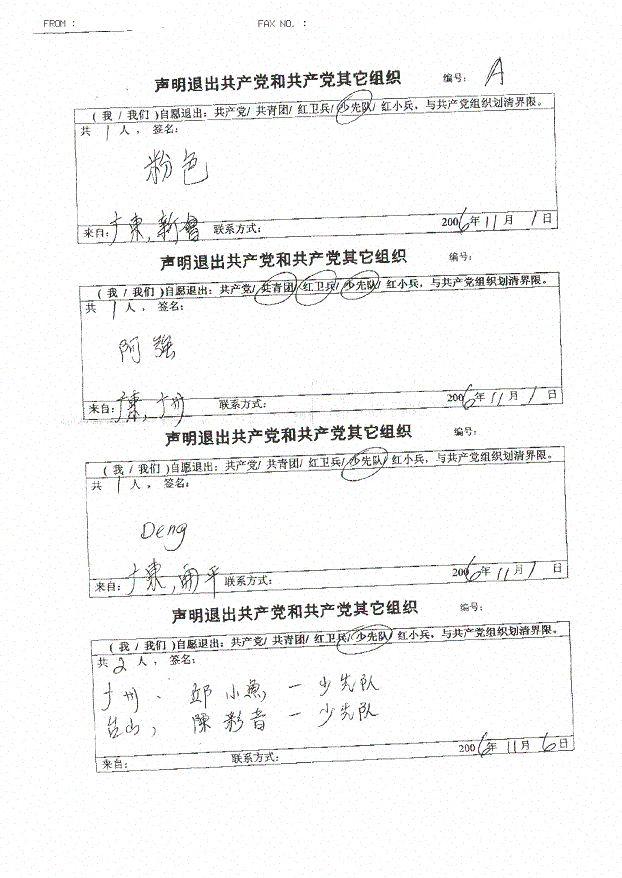 FROM : FAX NO. :
声明退出共产党和共产党其它组织 编号: A
( 我 / 我们 )自愿退出: 共产党/ 共青团/ 红卫兵/ 少先队/ 红小兵，与共产党组织划清界限。
共 1 人 ， 签名:
粉色
来自: 广東,新會 联系方式: 2006年11月1日
声明退出共产党和共产党其它组织 编号:
( 我 / 我们 )自愿退出: 共产党/ 共青团/ 红卫兵/ 少先队/ 红小兵，与共产党组织划清界限。
共 1 人 ， 签名:
阿强
来自: 广東,广州 联系方式: 2006年11月1日
声明退出共产党和共产党其它组织 编号:
( 我 / 我们 )自愿退出: 共产党/ 共青团/ 红卫兵/ 少先队/ 红小兵，与共产党组织划清界限。
共 1 人 ， 签名:
Deng
来自: 广東,開平 联系方式: 2006年11月1日
声明退出共产党和共产党其它组织 编号:
( 我 / 我们 )自愿退出: 共产党/ 共青团/ 红卫兵/ 少先队/ 红小兵，与共产党组织划清界限。
共 2 人 ， 签名:
广州、邱小燕 — 少先队
台山, 陳影音 — 少先队
来自: 联系方式: 2006年11月6日